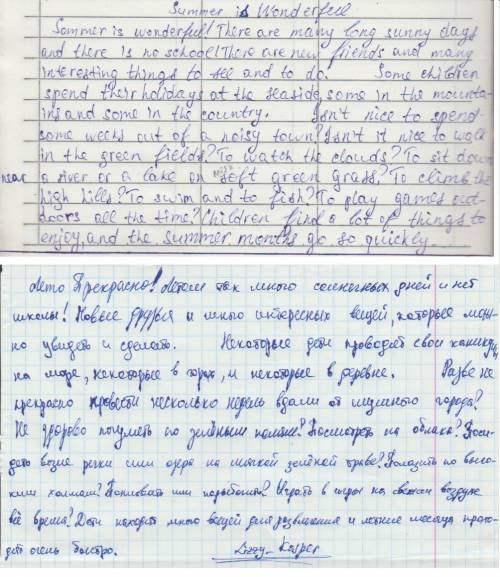 Summer is Wonderful
Sommer is wonderful! There are many long sunny days
and there is no school! There are new friends and many
interesting things to see and to do. Some children
spend their holidays at the seaside, some in the mounta-
ins and some in the country. Isn't nice to spend
some weeks out of a noisy town? Isn't it nice to walk
in the green fields? To watch the clouds? To sit down
near a river or a lake on soft green grass? To climb the
high hills? To swim and to fish? To play games out-
doors all the time? Children find a lot of things to
enjoy, and the summer months go so quickly.
Лето Прекрасно! Летом так много солнечных дней и нет
школы! Новые друзья и много интересных вещей, которые мож-
но увидеть и сделать. Некоторые дети проводят свои каникулы
на море, некоторые в горах, и некоторые в деревне. Разве не
прекрасно провести несколько недель вдали от шумного города?
Не здорово погулять по зелёным полям? Посмотреть на облака? Поси-
деть возле речки или озера на мягкой зелёной траве? Полазить по высо-
ким холмам? Поплавать или порыбачить? Играть в игры на свежем воздухе
всё время? Дети находят много вещей для развлечения и летние месяцы прохо-
дят очень быстро. Lizzy-Kasper